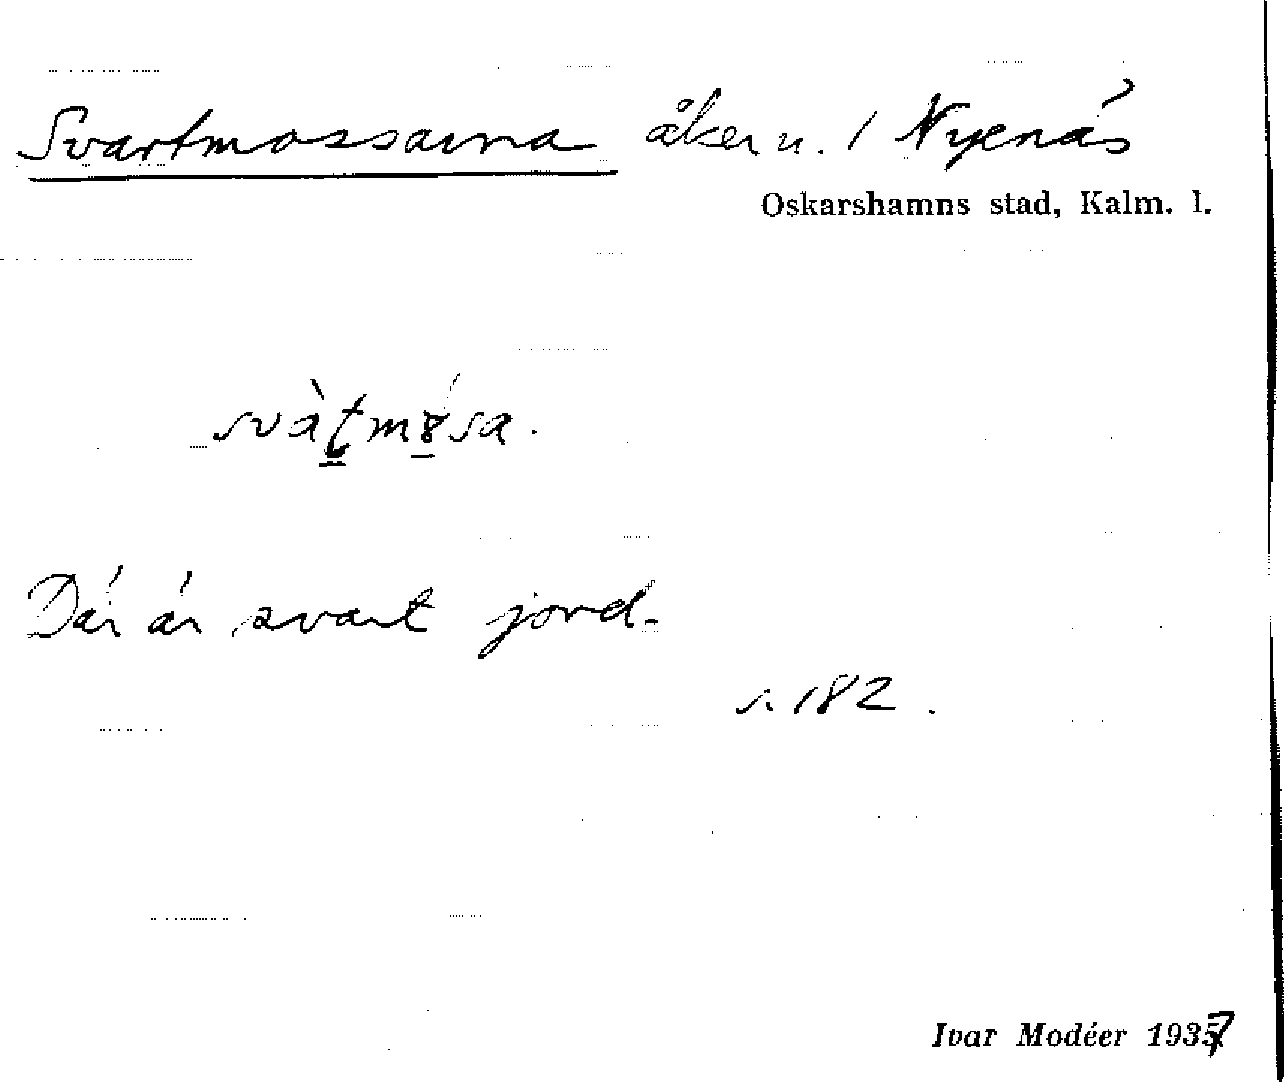 Svartmossarna åker u. / Nyenäs
Oskarshamns stad, Kalm. l.
Där är svart jord.
s. 182.
Ivar Modéer 1937